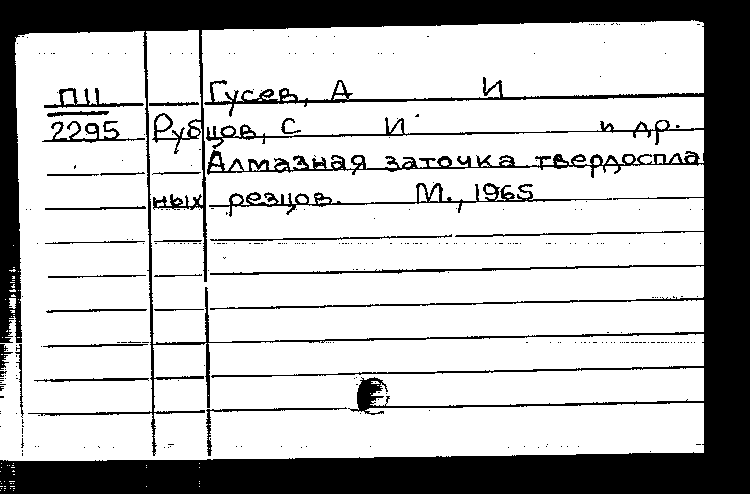 П11 Гусев, А И
2295 Рубцов, С И и др.
Алмазная заточка твердоспла
ных резцов. М., 1965